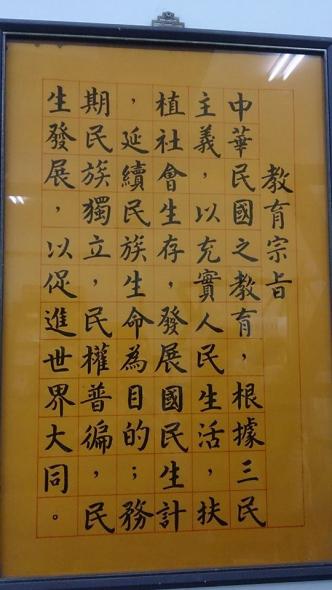 教育宗旨
中華民國之教育，根據三民
主義，以充實人民生活，扶
植社會生存，發展國民生計
，延續民族生命為目的；務
期民族獨立，民權普徧，民
生發展，以促進世界大同。